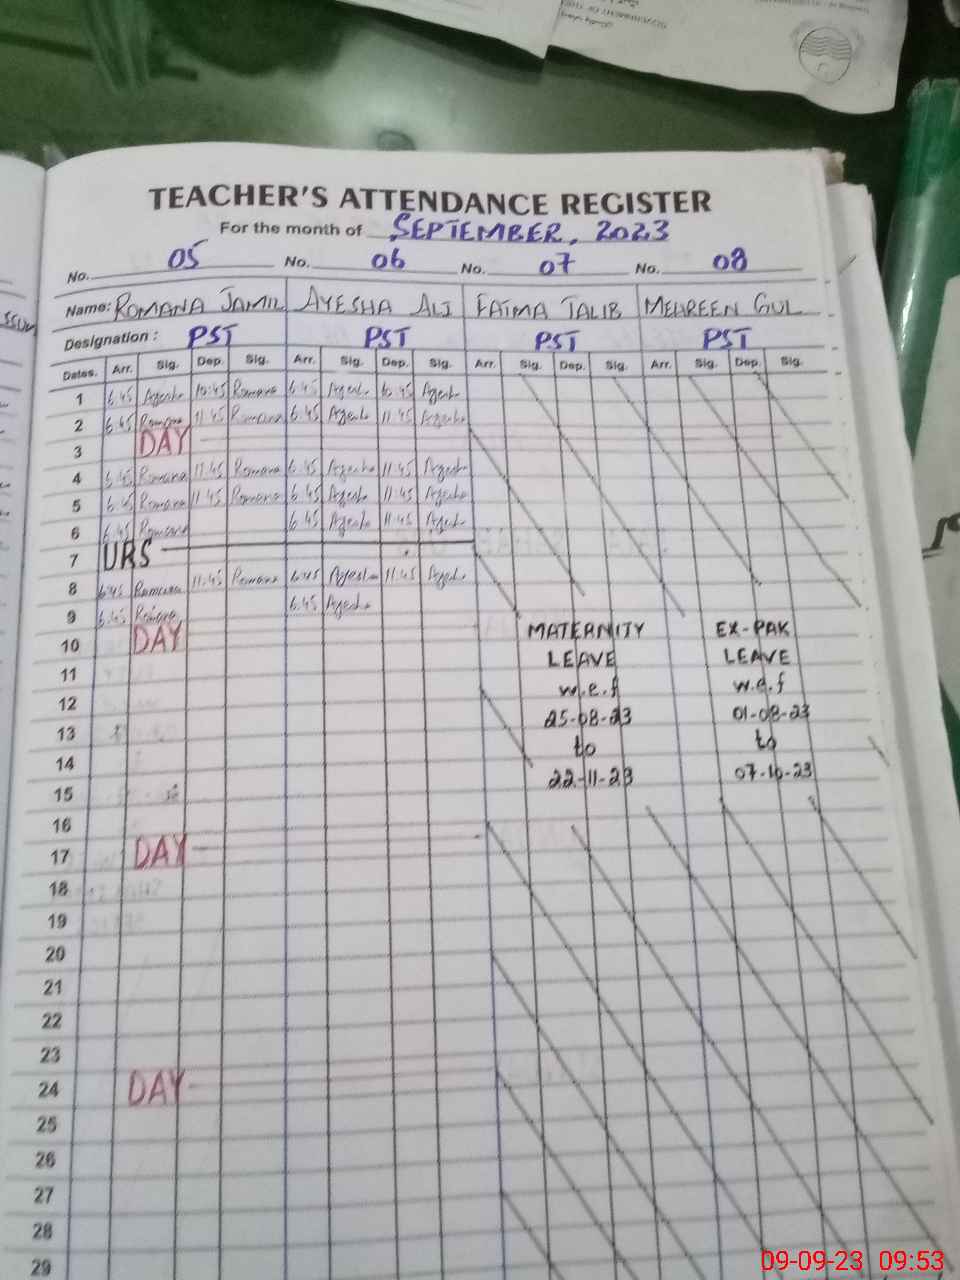 TEACHER'S ATTENDANCE REGISTER
For the month of SEPTEMBER, 2023
No. 05 No. 06 No. 07 No. 08
Name: ROMANA JAMIL AYESHA ALI FATMA TALIB MEHREEN GUL
Designation : PST PST PST PST
Dates. Arr. Sig. Dep. Sig. Arr. Sig. Dep. Sig. Arr. Sig. Dep. Sig. Arr. Sig. Dep. Sig.
1 6:45 10:45 Romana 6:45 Ayesha Ayesha
2 6:45 Romana 11:45 Romana 6:45 Ayesha 11:45 Ayesha
3 DAY
4 6:45 Romana 11:45 Romana 6:45 Ayesha 11:45 Ayesha
5 6:45 Romana 11:45 Romana 6:45 Ayesha 11:45 Ayesha
6 6:45 Romana 6:45 Ayesha 11:45 Ayesha
7 URS
8 6:45 Romana 11:45 Romana 6:45 Ayesha 11:45 Ayesha
9 6:45 Romana 6:45 Ayesha
10 DAY MATERNITY EX-PAK
11 LEAVE LEAVE
12 w.e.f w.e.f
13 25-08-23 01-08-23
14 to to
15 22-11-23 07-10-23
16
17 DAY
18
19
20
21
22
23
24 DAY
25
26
27
28
29
09-09-23 09:53